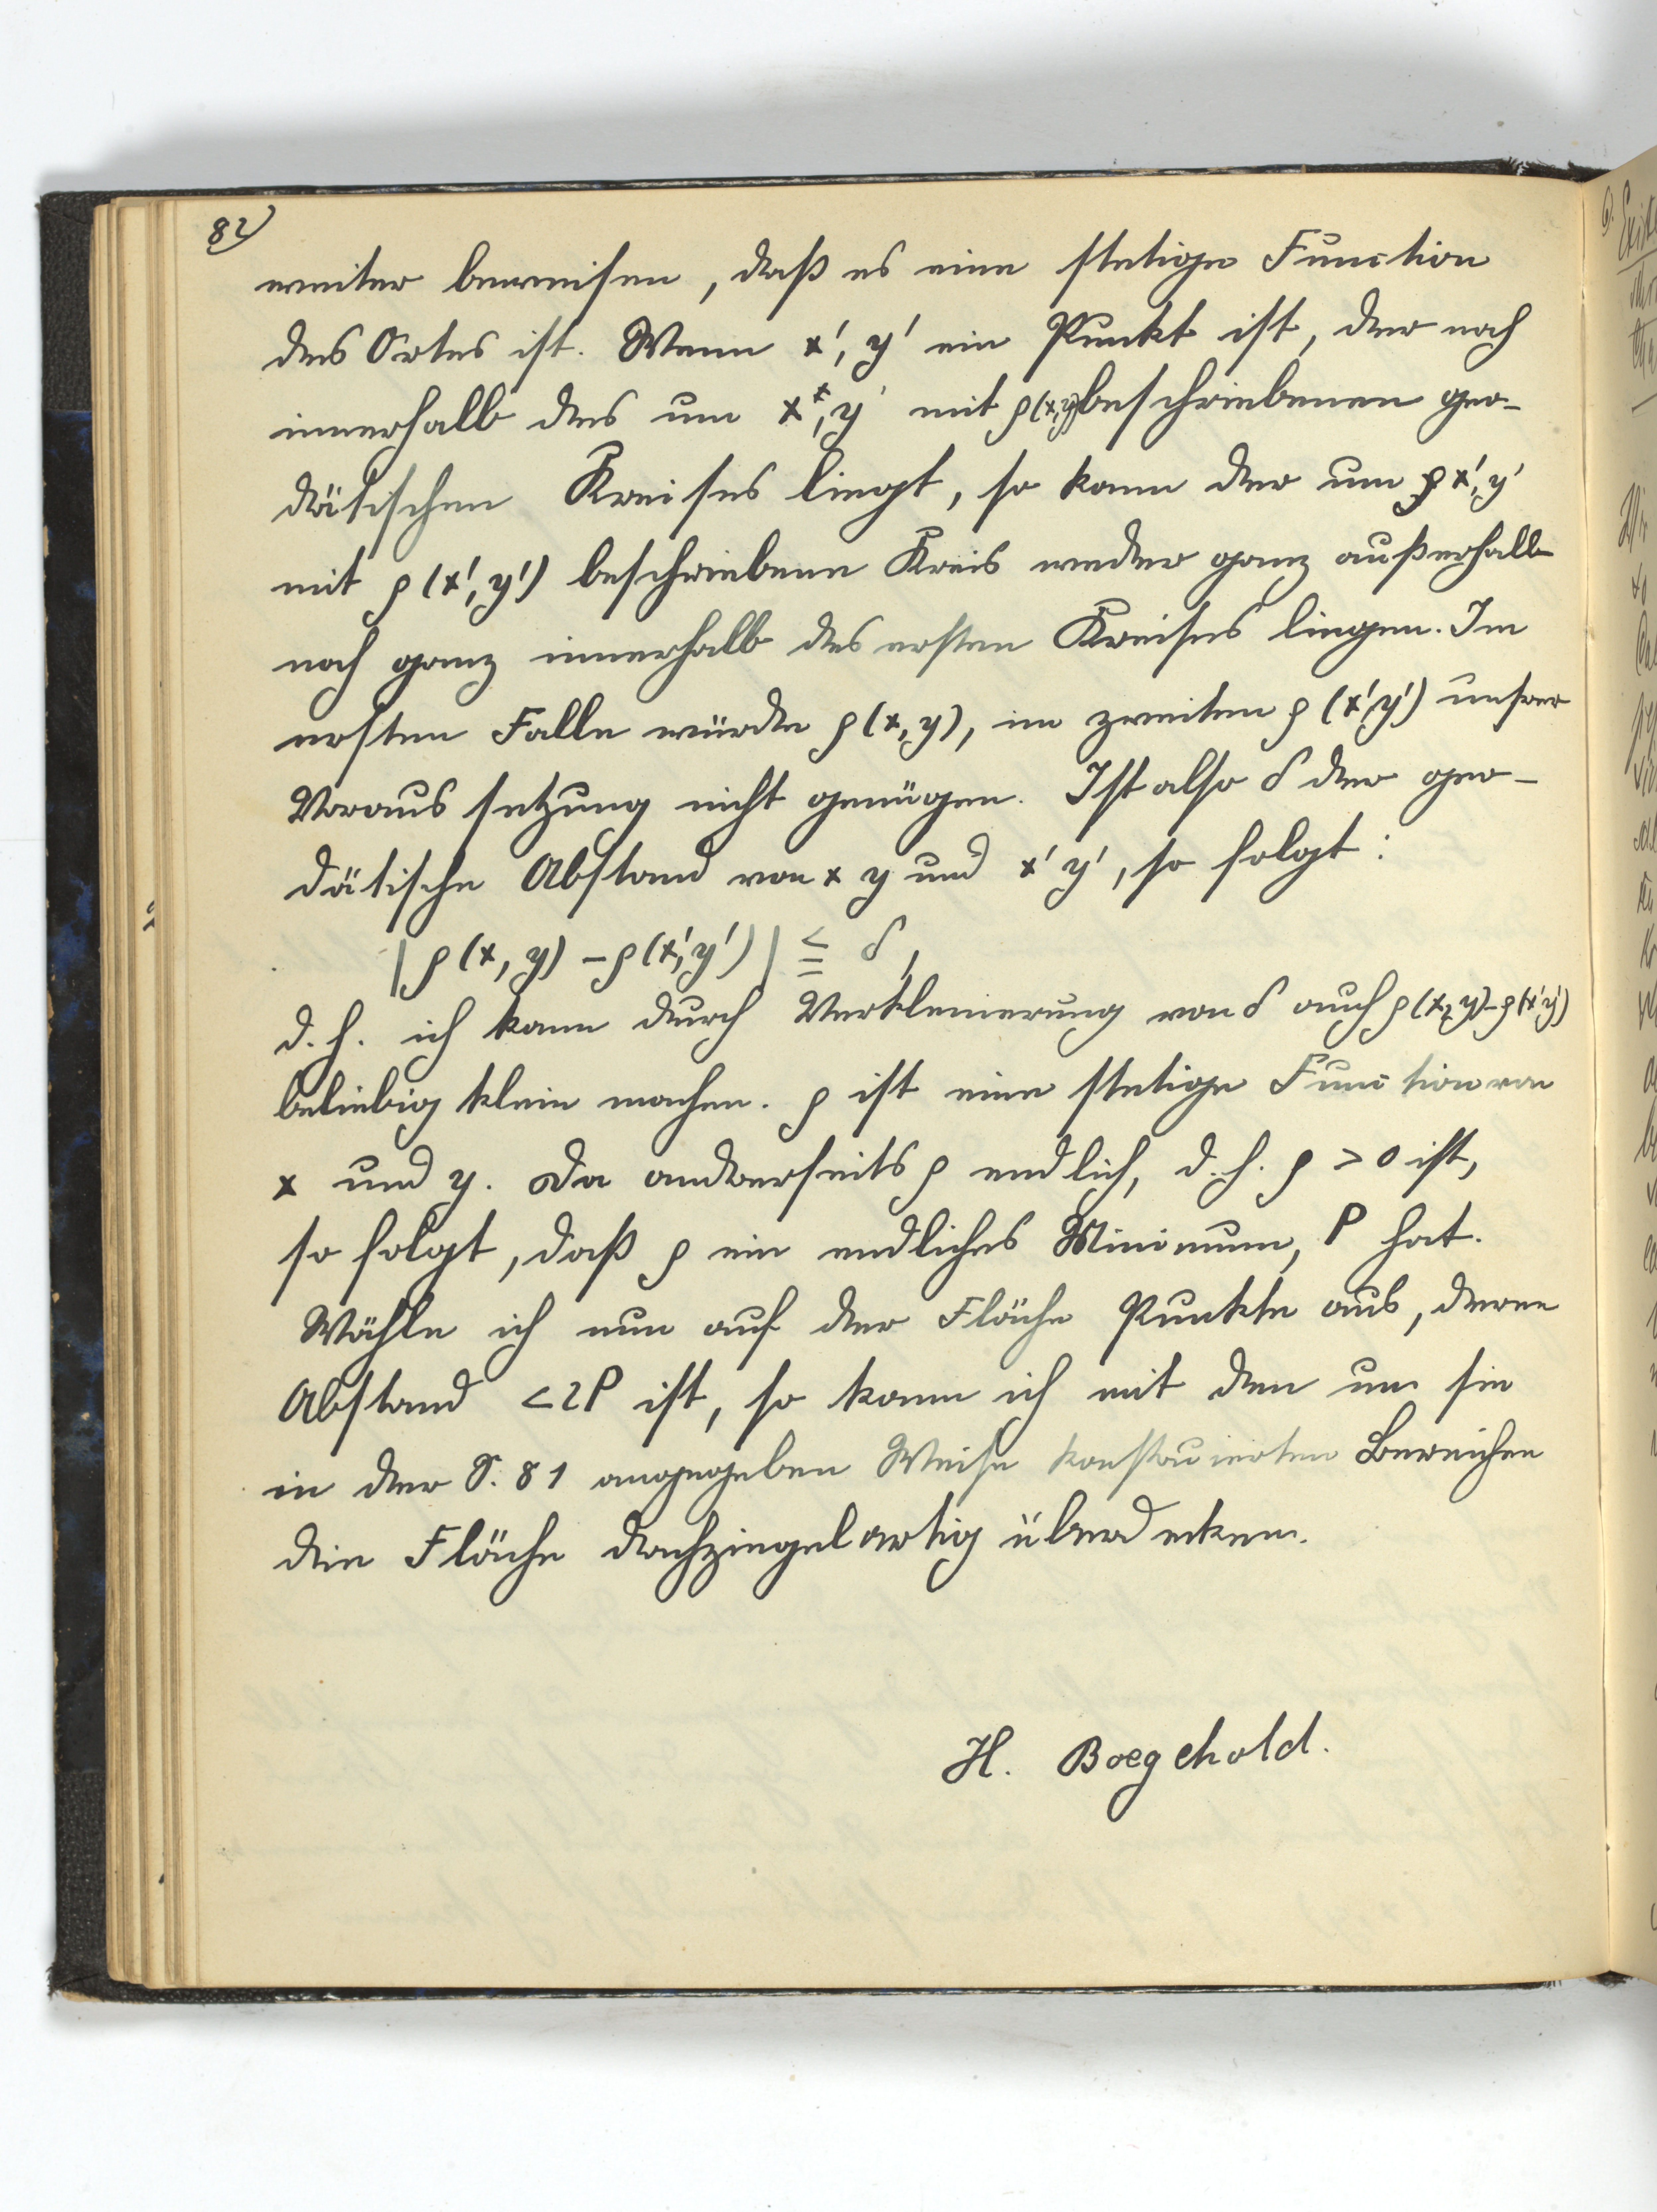 82)
weiter beweisen, daß es eine stetige Function
des Ortes ist. Wenn x', y' ein Punkt ist, der noch
innerhalb des um x, y mit ρ(x,y) beschriebenen geo-
dätischen Kreises liegt, so kann der um x', y'
mit ρ(x', y') beschriebene Kreis weder ganz außerhalb
noch ganz innerhalb des ersten Kreises liegen. Im
ersten Falle würde ρ(x, y), im zweiten ρ(x'y') unsrer
Voraussetzung nicht genügen. Ist also δ der geo-
dätische Abstand von x y und x' y', so folgt:
|ρ(x, y) – ρ(x', y')| ≦ δ,
d. h. ich kann durch Verkleinerung von δ auch ρ(x, y) – ρ(x'y')
beliebig klein machen. ρ ist eine stetige Function von
x und y. Da anderseits ρ endlich, d. h. ρ > 0 ist,
so folgt, daß ρ ein endliches Minimum, P hat.
Wähle ich nun auf der Fläche Punkte aus, deren
Abstand < 2P ist, so kann ich mit den um sie
in der S. 81 angegeben Weise konstruierten Bereichen
die Fläche dachziegelartig überdecken.
H. Boegehold.